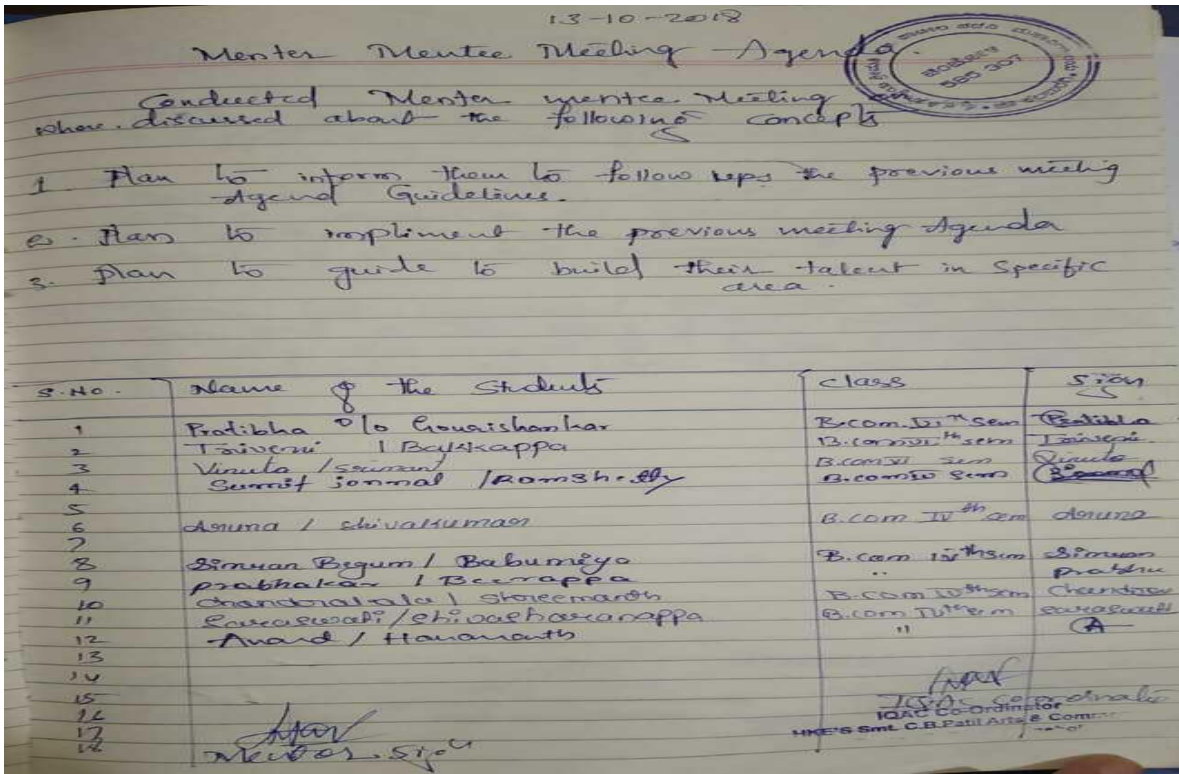 13-10-2018
Menter Mentee Meeting Agenda
Conducted Menter mentee Meeting
where discussed about the following concepts
1. Plan to inform them to follow the previous meeting
Agend Guidelines.
2. Plan to impliment the previous meeting Agenda
3. Plan to guide to build their talent in Specific
area.
585 307
S.No. Name of the Students class Sign
1 Pratibha D/o Gourishankar B.com VIth sem Pratibha
2 Triveni / Balkkappa B.com VIth sem Triveni
3 Vinuta / B.com VI sem Vinuta
4 Summit jonmal / Ramshetty B.com IV sem
5
6 Aruna / Shivakumar B.com IVth sem Aruna
7
8 Simran Begum / Babumiya B.com IVth sem Simran
9 prabhakar / Beerappa " prabhu
10 Chandrakala / Shreemanth B.com IVth sem
11 Saraswati / Shivasharanappa B.com IVth sem Saraswati
12 Anand / Hanamanth " A
13
14
15
16
17
18
Mentor Sign
IQAC Co-ordinator
IQAC Co-Ordinator
HKE'S Smt. C.B.Patil Arts & Comm